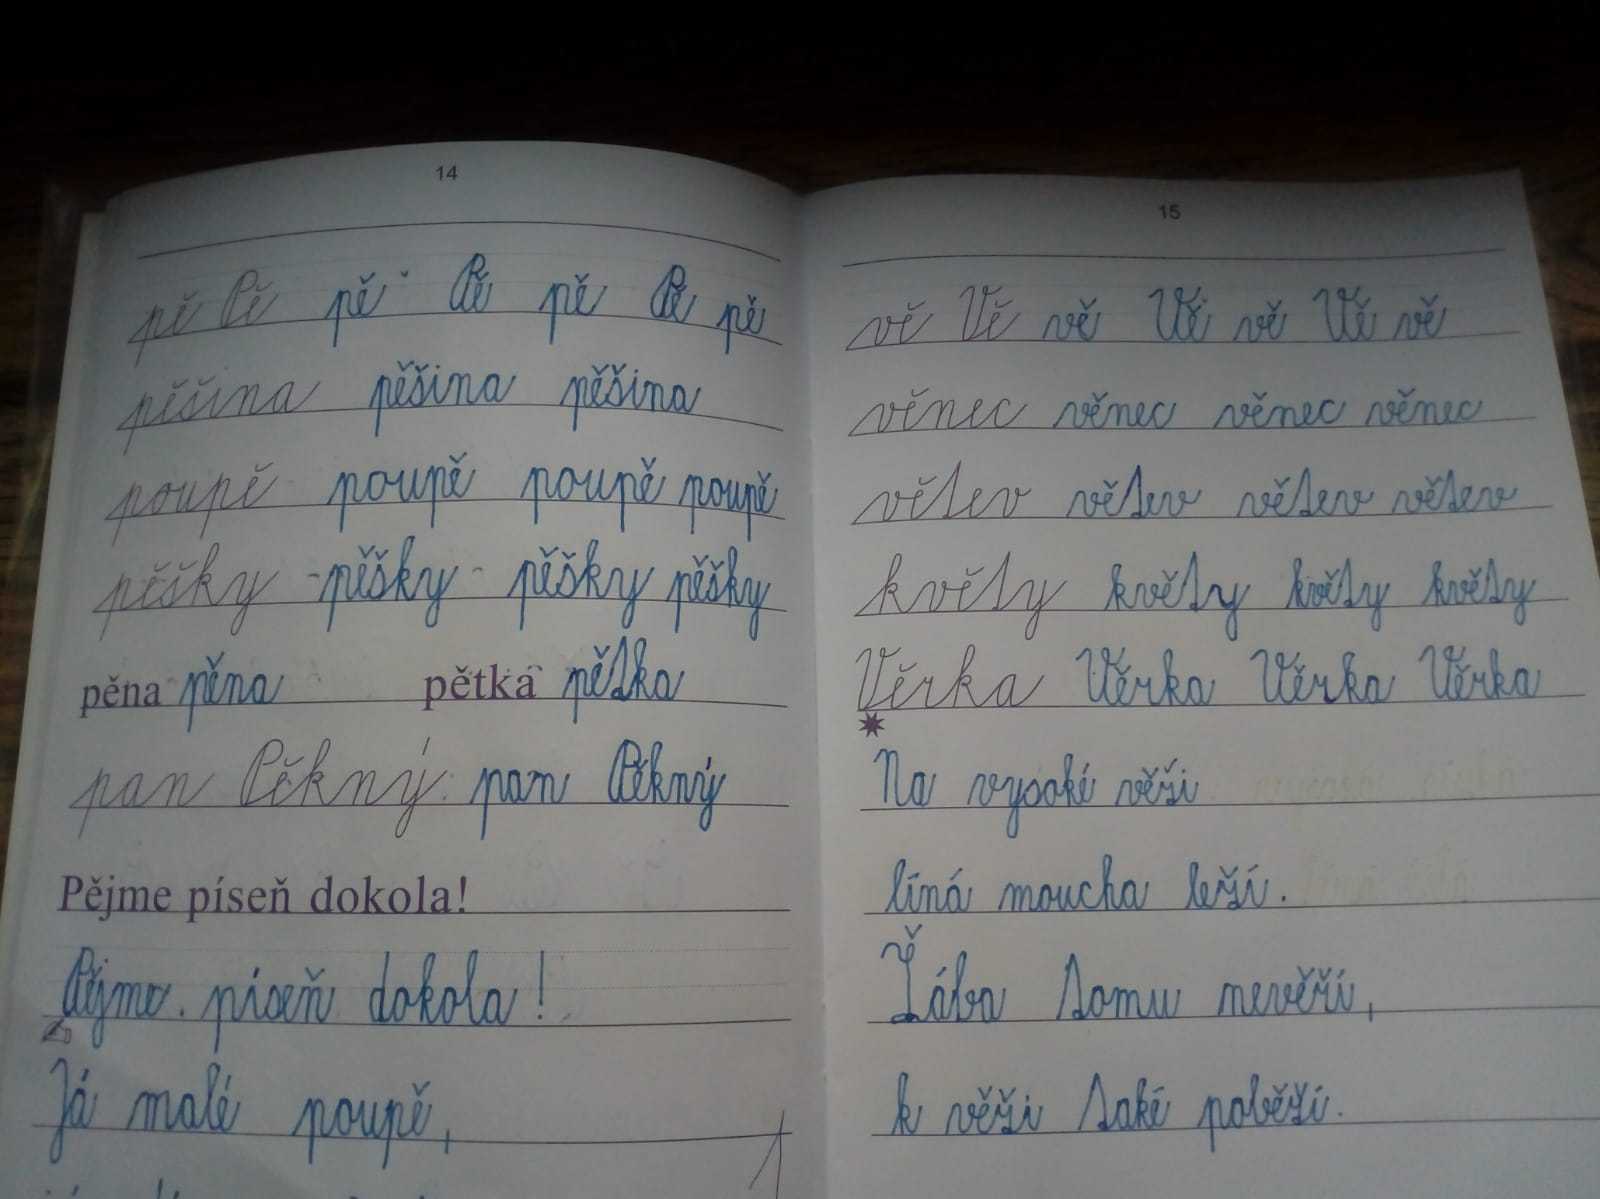 14
pě Pě pě Pě pě Pě pě
pěšina pěšina pěšina
poupě poupě poupě poupě
pěšky pěšky pěšky pěšky
pěna pěna pětka pětka
pan Pěkný pan Pěkný
Pějme píseň dokola!
Pějme píseň dokola!
Já malé poupě,
15
vě Vě vě Vě vě Vě vě
věnec věnec věnec věnec
větev větev větev větev
květy květy květy květy
Věrka Věrka Věrka Věrka
Na vysoké věži
líná moucha leží.
Žába tomu nevěří,
k věži také poběží.